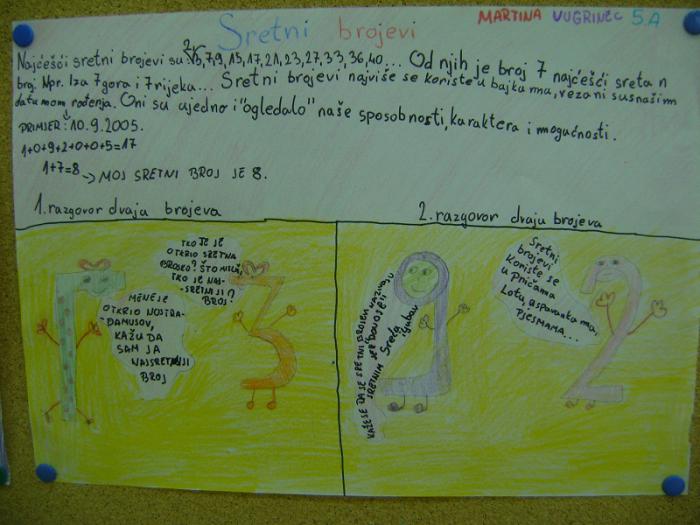 MARTINA VUGRINEC 5.A
Sretni brojevi
Najčešći sretni brojevi su 2, 3, 7, 9, 15, 17, 21, 23, 27, 33, 36, 40... Od njih je broj 7 najčešći sretan
broj. Npr. Iza 7 gora i 7 rijeka... Sretni brojevi najviše se koriste u bajkama, vezani su s našim
datumom rođenja. Oni su ujedno i "ogledalo" naše sposobnosti, karaktera i mogućnosti.
PRIMJER: 10.9.2005.
1+0+9+2+0+0+5=17
1+7=8 → MOJ SRETNI BROJ JE 8.
1. razgovor dvaju brojeva
TKO JE JE
OTKRIO SRETNA
BROJEO? ŠTO MISLIŠ,
TKO JE NAJ-
SRETNIJI
BROJ?
MENE JE
OTKRIO NOSTRA-
DAMUSOV,
KAŽU DA
SAM JA
NAJSRETNIJI
BROJ
2. razgovor dvaju brojeva
KAŽE SE DA SE SRETNI BROJEVI NAZIVAJU
SRETNIM JER DONOSE
Sreću i ljubav
Sretni
brojevi
Koriste se
u Pričama
Lotu, uspavankama,
PJESMAMA...